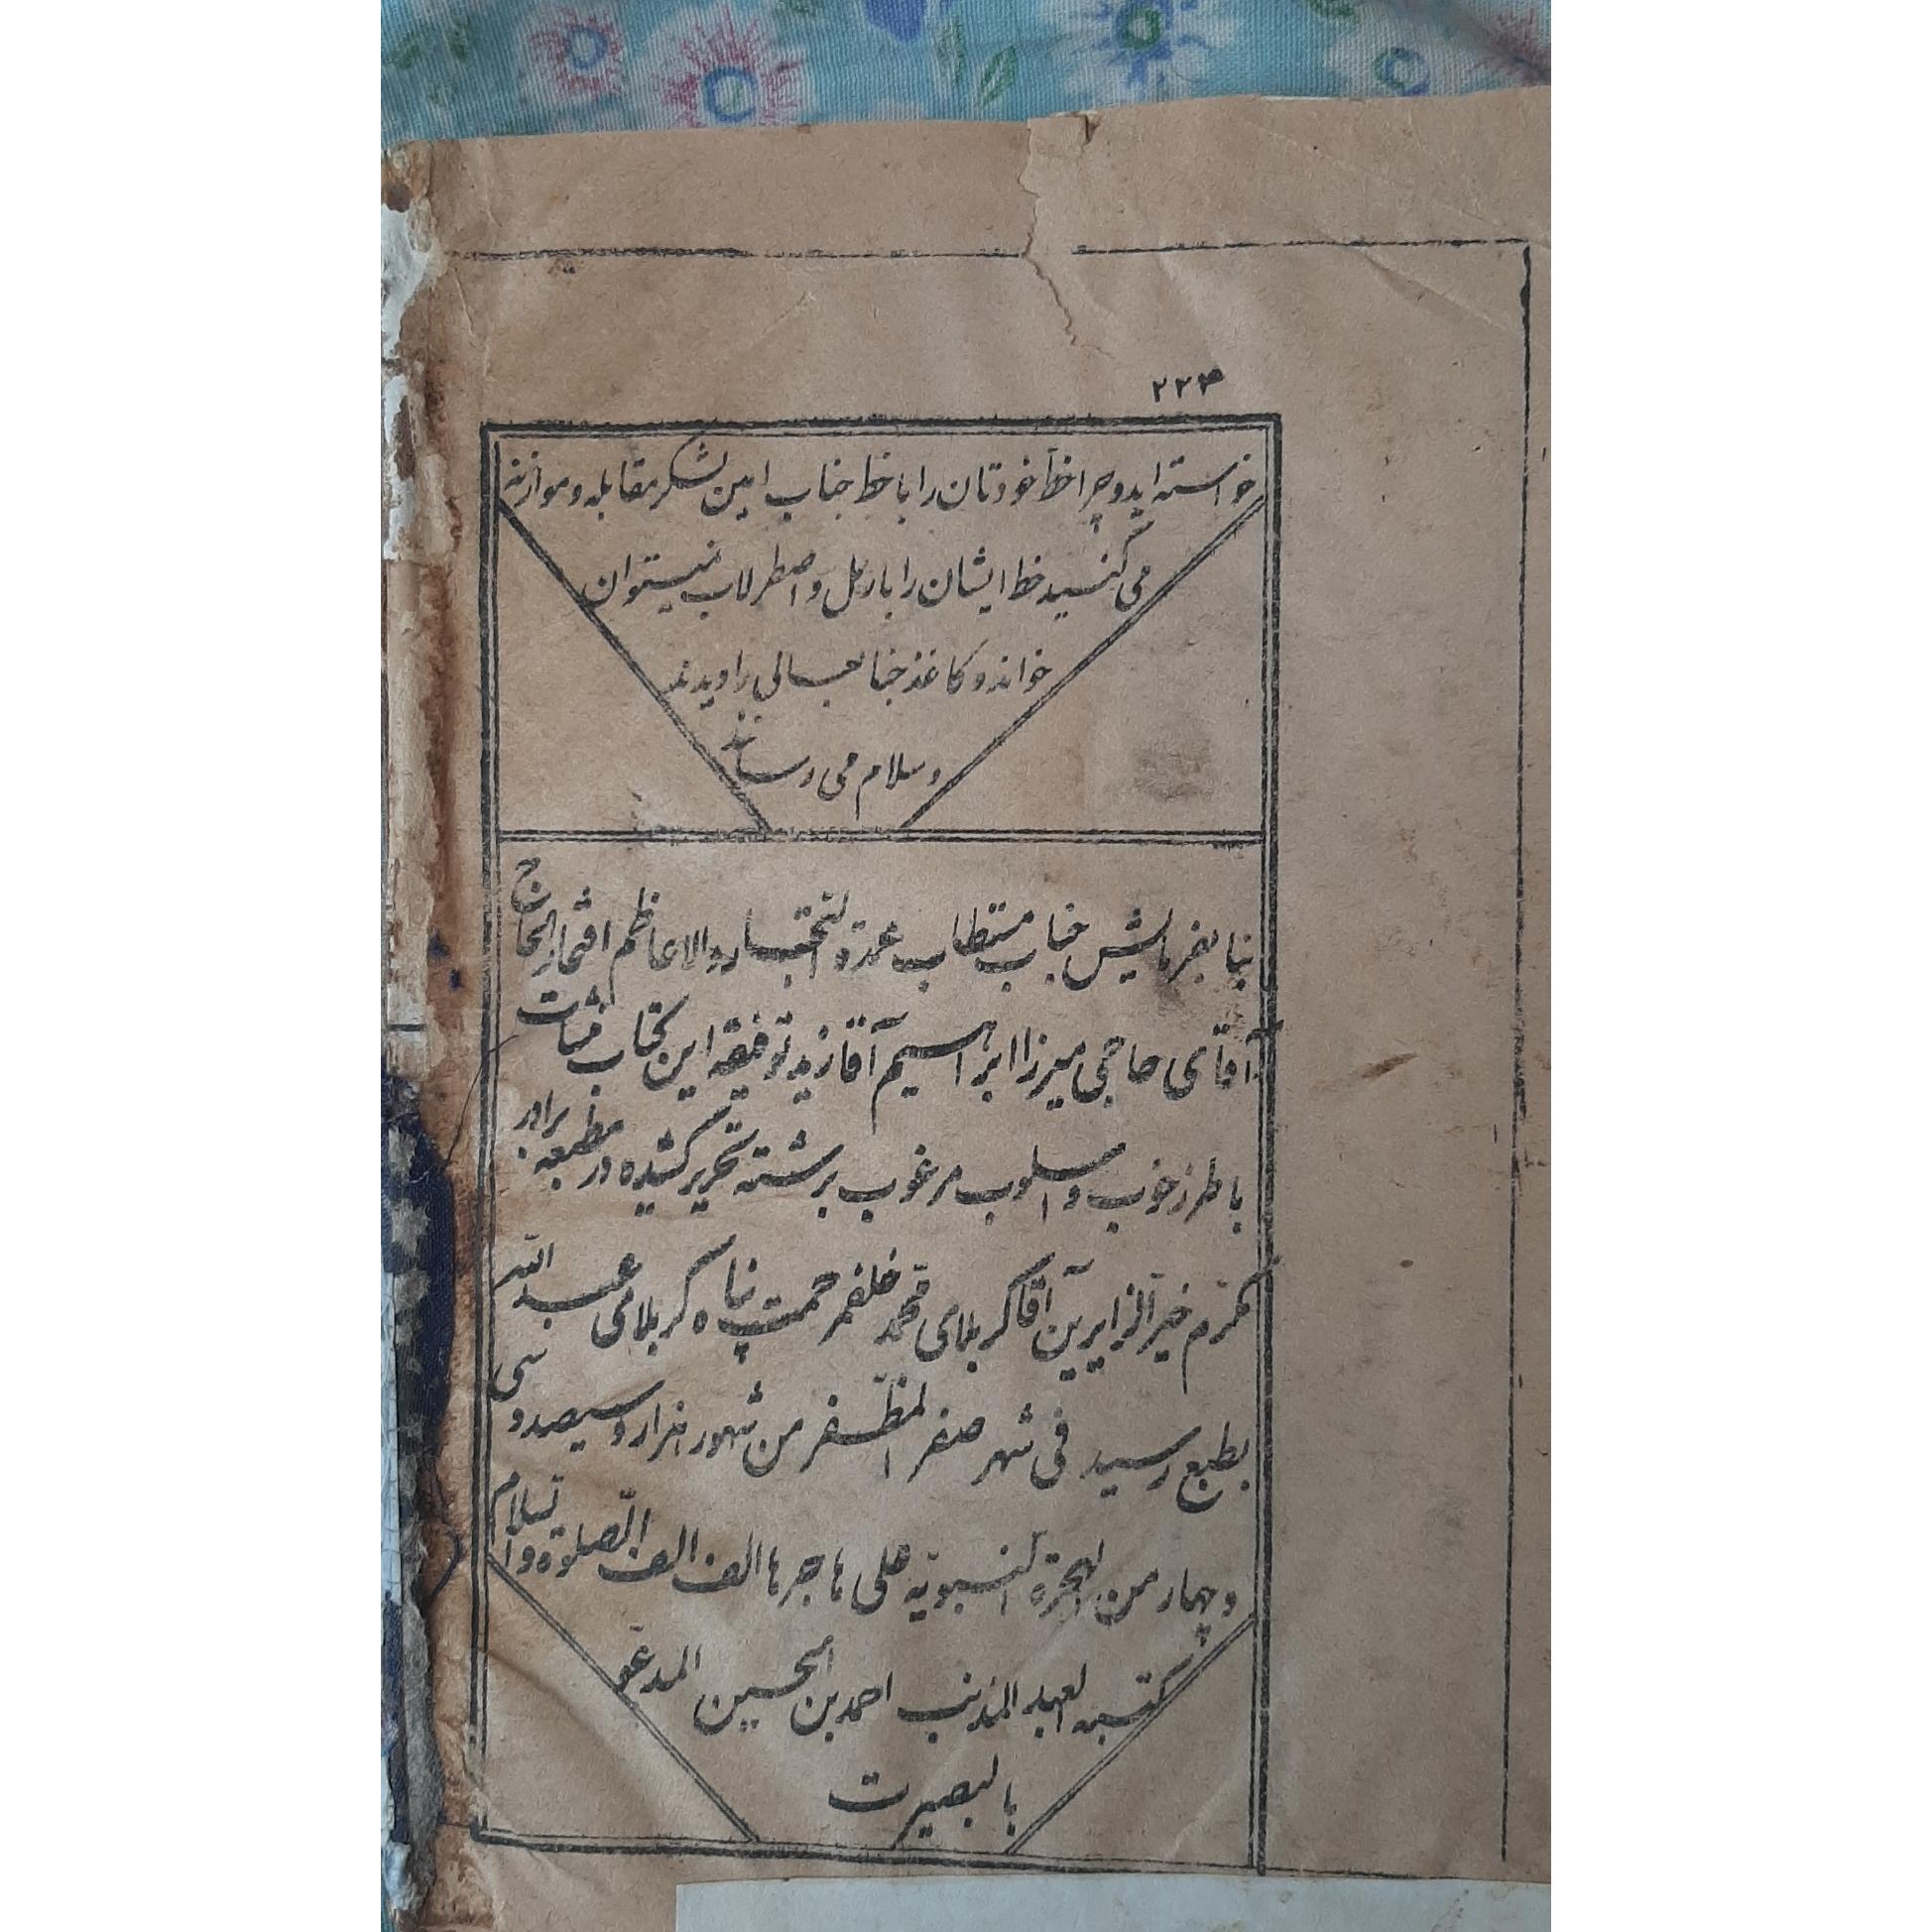 ۲۲۴
خواسته اید و چرا خط خودتان را با خط جناب امین لشکر مقابله و موازنه
می کنید خط ایشان را با رمل و اصطرلاب نمیتوان
خواند و کاغذ جنابعالی را دیدند
و سلام می رسانند
بنا بفرمایش جناب مستطاب عمدة التجار والاعاظم افتخار الحاج
آقای حاجی میرزا ابراهیم آقا زید توفیقه این کتاب منشات
با طرز خوب و اسلوب مرغوب برشته تحریر کشیده در مطبعه برادر
مکرم خیر الزایرین آقا کربلامی محمد خلف مرحمت پناه کربلامی عبد الله
بطبع رسید فی شهر صفر المظفر من شهور هزار و سیصد و سی
و چهار من الهجرة النبویة علی هاجرها الف الف الصلوة و السلام
کتبه العبد المذنب احمد بن الحسین المدعو
بالبصیرت